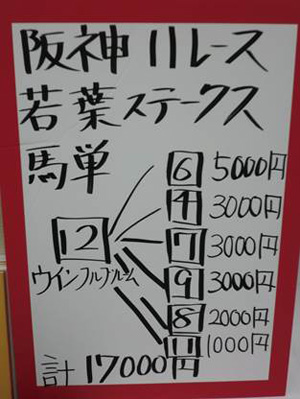 阪神11レース
若葉ステークス
馬単
6 5000円
4 3000円
12 7 3000円
ウインフルブルーム 9 3000円
8 2000円
11 1000円
計 17000円